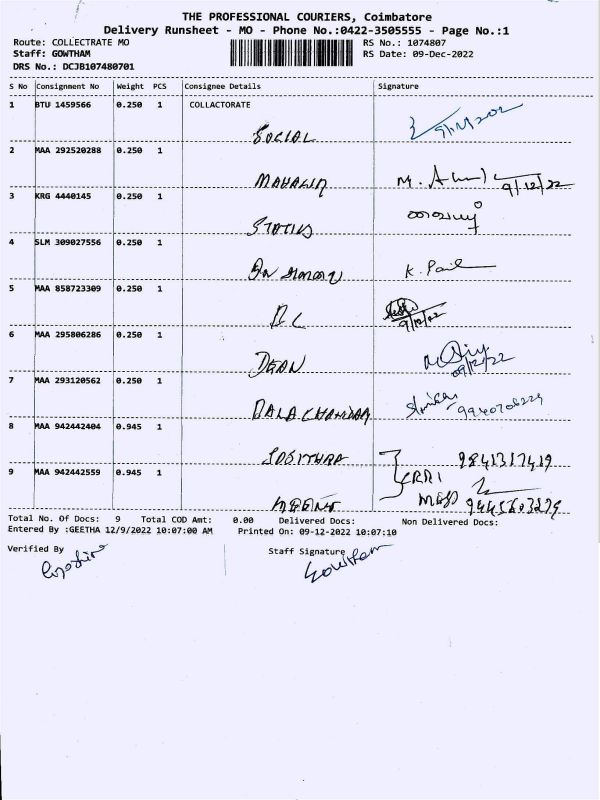 THE PROFESSIONAL COURIERS, Coimbatore
Delivery Runsheet - MO - Phone No.:0422-3505555 - Page No.:1
Route: COLLECTRATE MO RS No.: 1074807
Staff: GOWTHAM RS Date: 09-Dec-2022
DRS No.: DCJB107480701
S No Consignment No Weight PCS Consignee Details Signature
1 BTU 1459566 0.250 1 COLLACTORATE
SOCIAL
2 MAA 292520288 0.250 1
9/12/22
3 KRG 4440145 0.250 1
STATUS
4 SLM 309027556 0.250 1
K. Paul
5 MAA 858723309 0.250 1
9/12/22
6 MAA 295806286 0.250 1
DEAN 09/12/22
7 MAA 293120562 0.250 1
8 MAA 942442404 0.945 1
9841317419
9 MAA 942442559 0.945 1
Total No. Of Docs: 9 Total COD Amt: 0.00 Delivered Docs: Non Delivered Docs:
Entered By :GEETHA 12/9/2022 10:07:00 AM Printed On: 09-12-2022 10:07:10
Verified By Staff Signature
Gowtham